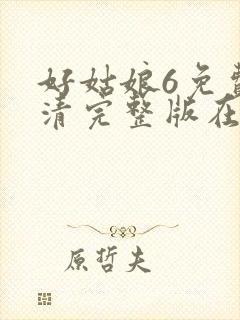 好姑娘6免费
清完整版在
原哲夫